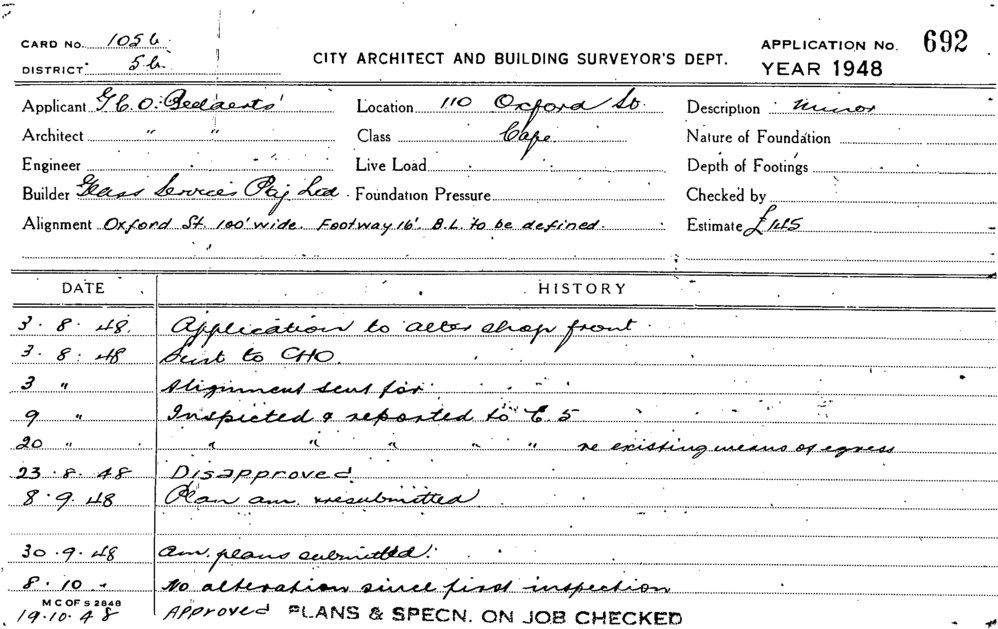 CARD No. 1056
DISTRICT 56
CITY ARCHITECT AND BUILDING SURVEYOR'S DEPT.
APPLICATION No. 692
YEAR 1948
Applicant G. C. O. Location 110 Oxford St. Description Minor
Architect " " Class Cafe Nature of Foundation
Engineer Live Load Depth of Footings
Builder Glass Services Pty Ltd. Foundation Pressure Checked by
Alignment Oxford St. 100' wide. Footway 16'. B.L. to be defined. Estimate £145
DATE HISTORY
3. 8. 48. Application to alter shop front.
3. 8. 48 Sent to CHO.
3 " Alignment sent for
9 " Inspected & reported to C.S
20 " " " " " " re existing means of egress
23. 8. 48 Disapproved
8. 9. 48 Plan am. resubmitted
30. 9. 48 Am. plans submitted.
8. 10 " No alteration since first inspection
M C OF S 2848
19.10.48 Approved PLANS & SPECN. ON JOB CHECKED